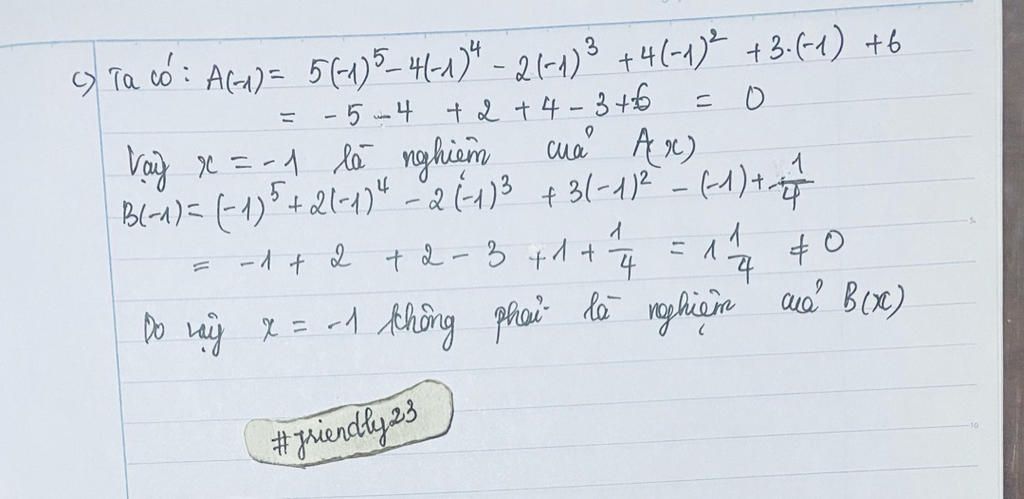 c) Ta có: A(-1) = 5(-1)⁵ - 4(-1)⁴ - 2(-1)³ + 4(-1)² + 3.(-1) + 6
= -5 - 4 + 2 + 4 - 3 + 6 = 0
Vậy x = -1 là nghiệm của A(x)
B(-1) = (-1)⁵ + 2(-1)⁴ - 2(-1)³ + 3(-1)² - (-1) + 1/4
= -1 + 2 + 2 - 3 + 1 + 1/4 = 1 1/4 ≠ 0
Do vậy x = -1 không phải là nghiệm của B(x)
#friendly23